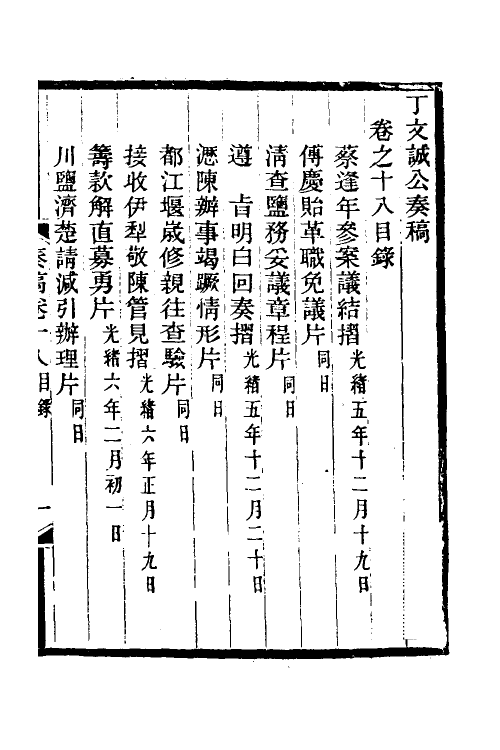 丁文誠公奏稿
卷之十八目錄
蔡逢年參案議結摺光緒五年十二月十九日
傅慶貽革職免議片同日
清查鹽務妥議章程片同日
遵 旨明白回奏摺光緒五年十二月二十日
瀝陳辦事竭蹶情形片同日
都江堰歲修親往查驗片同日
接收伊犁敬陳管見摺光緒六年正月十九日
籌款解直募勇片光緒六年二月初一日
川鹽濟楚請減引辦理片同日
奏稿卷十八目錄 一